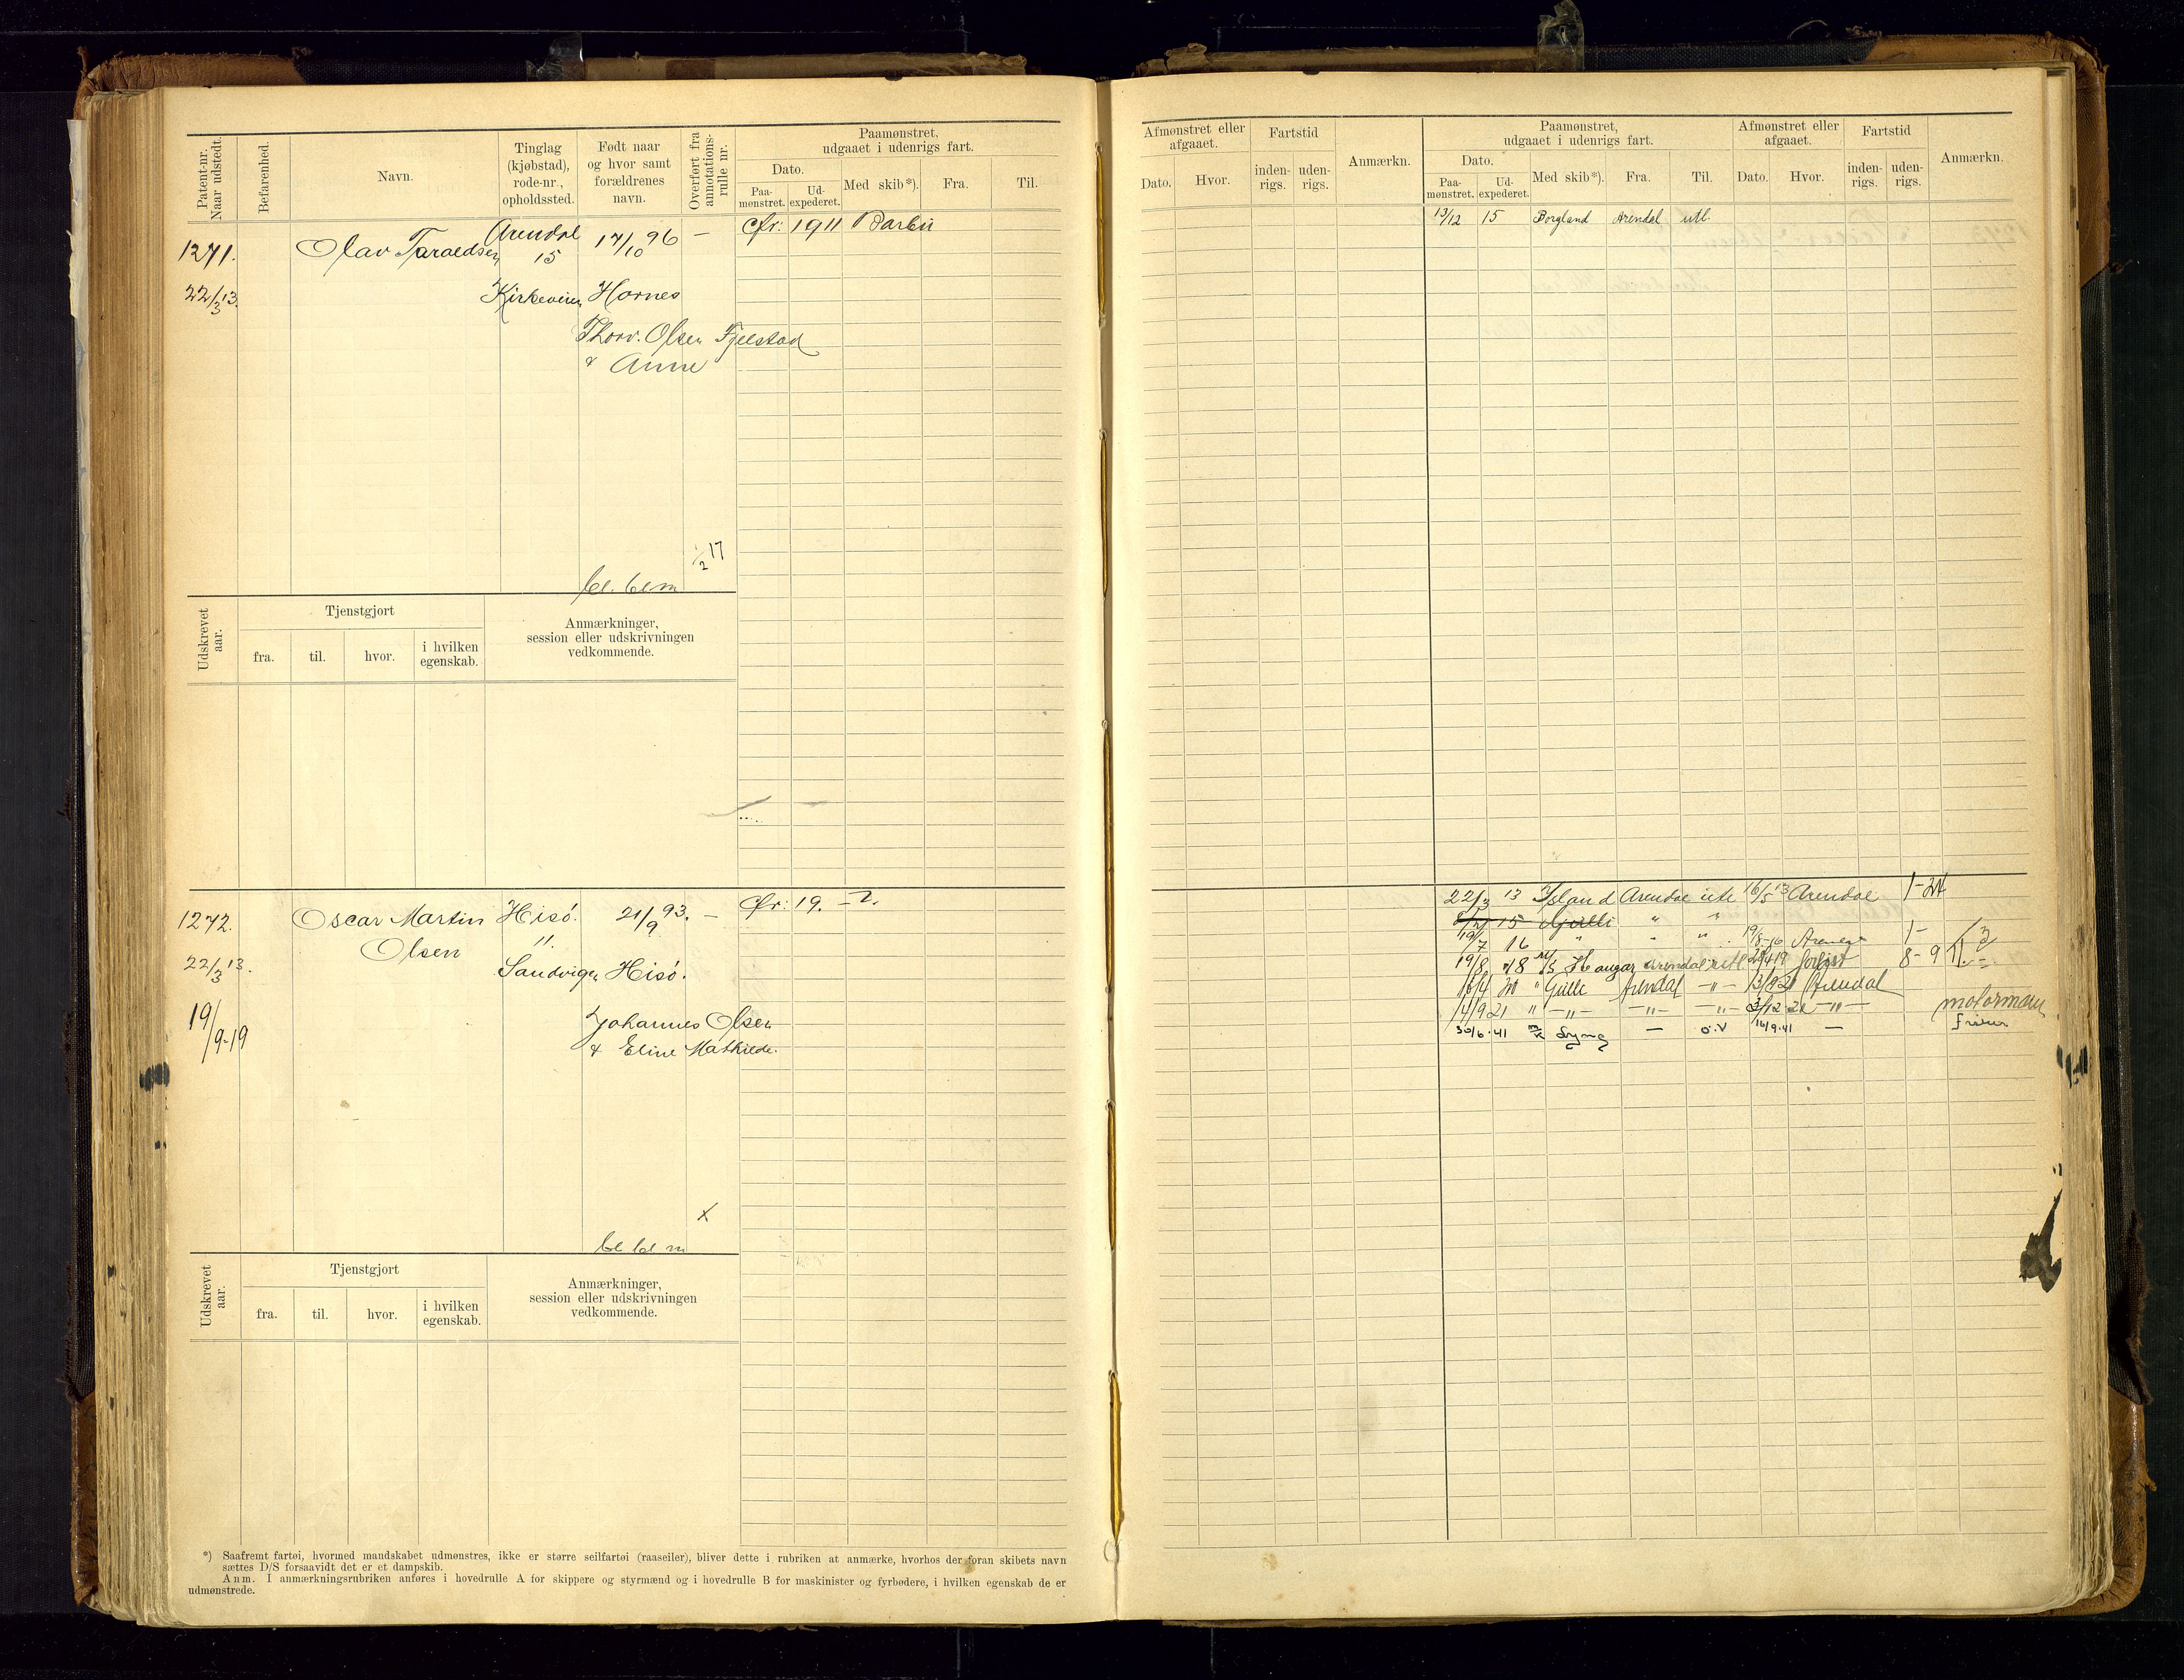 Patent-nr. Naar udstedt.
Befarenhed.
Navn.
Tinglag (kjøbstad), rode-nr., opholdssted.
Født naar og hvor samt forældrenes navn.
Overført fra annotations-rulle nr.
Paamønstret, udgaaet i udenrigs fart.
Dato.
Paa-mønstret.
Ud-expederet.
Med skib*).
Fra.
Til.
1271.
Olav Taraldsen
Arendal
15
17/10 96
—
Ofr: 1911 Barbu
22/3 13.
Kirkeveien
Hornes
Thorv. Olsen Fjelstad
& Anne
1/2 17
Udskrevet aar.
Tjenstgjort
fra.
til.
hvor.
i hvilken egenskab.
Anmærkninger, session eller udskrivningen vedkommende.
1272.
Oscar Martin
Olsen
Hisö.
11.
21/9 93.
—
Ofr: 19. —
22/3 13.
Sandvigen
Hisö.
19/9-19
Johannes Olsen
& Eline Mathilde.
x
Udskrevet aar.
Tjenstgjort
fra.
til.
hvor.
i hvilken egenskab.
Anmærkninger, session eller udskrivningen vedkommende.
*) Saafremt fartøi, hvormed mandskabet udmønstres, ikke er større seilfartøi (raaseiler), bliver dette i rubriken at anmærke, hvorhos der foran skibets navn
sættes D/S forsaavidt det er et dampskib.
Anm. I anmærkningsrubriken anføres i hovedrulle A for skippere og styrmænd og i hovedrulle B for maskinister og fyrbødere, i hvilken egenskab de er
udmønstrede.
Afmønstret eller afgaaet.
Dato.
Hvor.
Fartstid
inden-rigs.
uden-rigs.
Anmærkn.
Paamønstret, udgaaet i udenrigs fart.
Dato.
Paa-mønstret.
Ud-expederet.
Med skib*).
Fra.
Til.
Afmønstret eller afgaaet.
Dato.
Hvor.
Fartstid
inden-rigs.
uden-rigs.
Anmærkn.
13/12 15 Borgland Arendal utl.
22/3 13 Island Arendal ute 16/5 13 Arendal 1-24
15 " "
19/7 16 " " " 19/8-16 1-
19/8 Haugar Arendal utl. forlist 8-9
Gulle Arendal -"- Arendal
14/9 21 " -"- -"- -"- -"- motormann
30/6.41 Lyng — 16/9.41 —